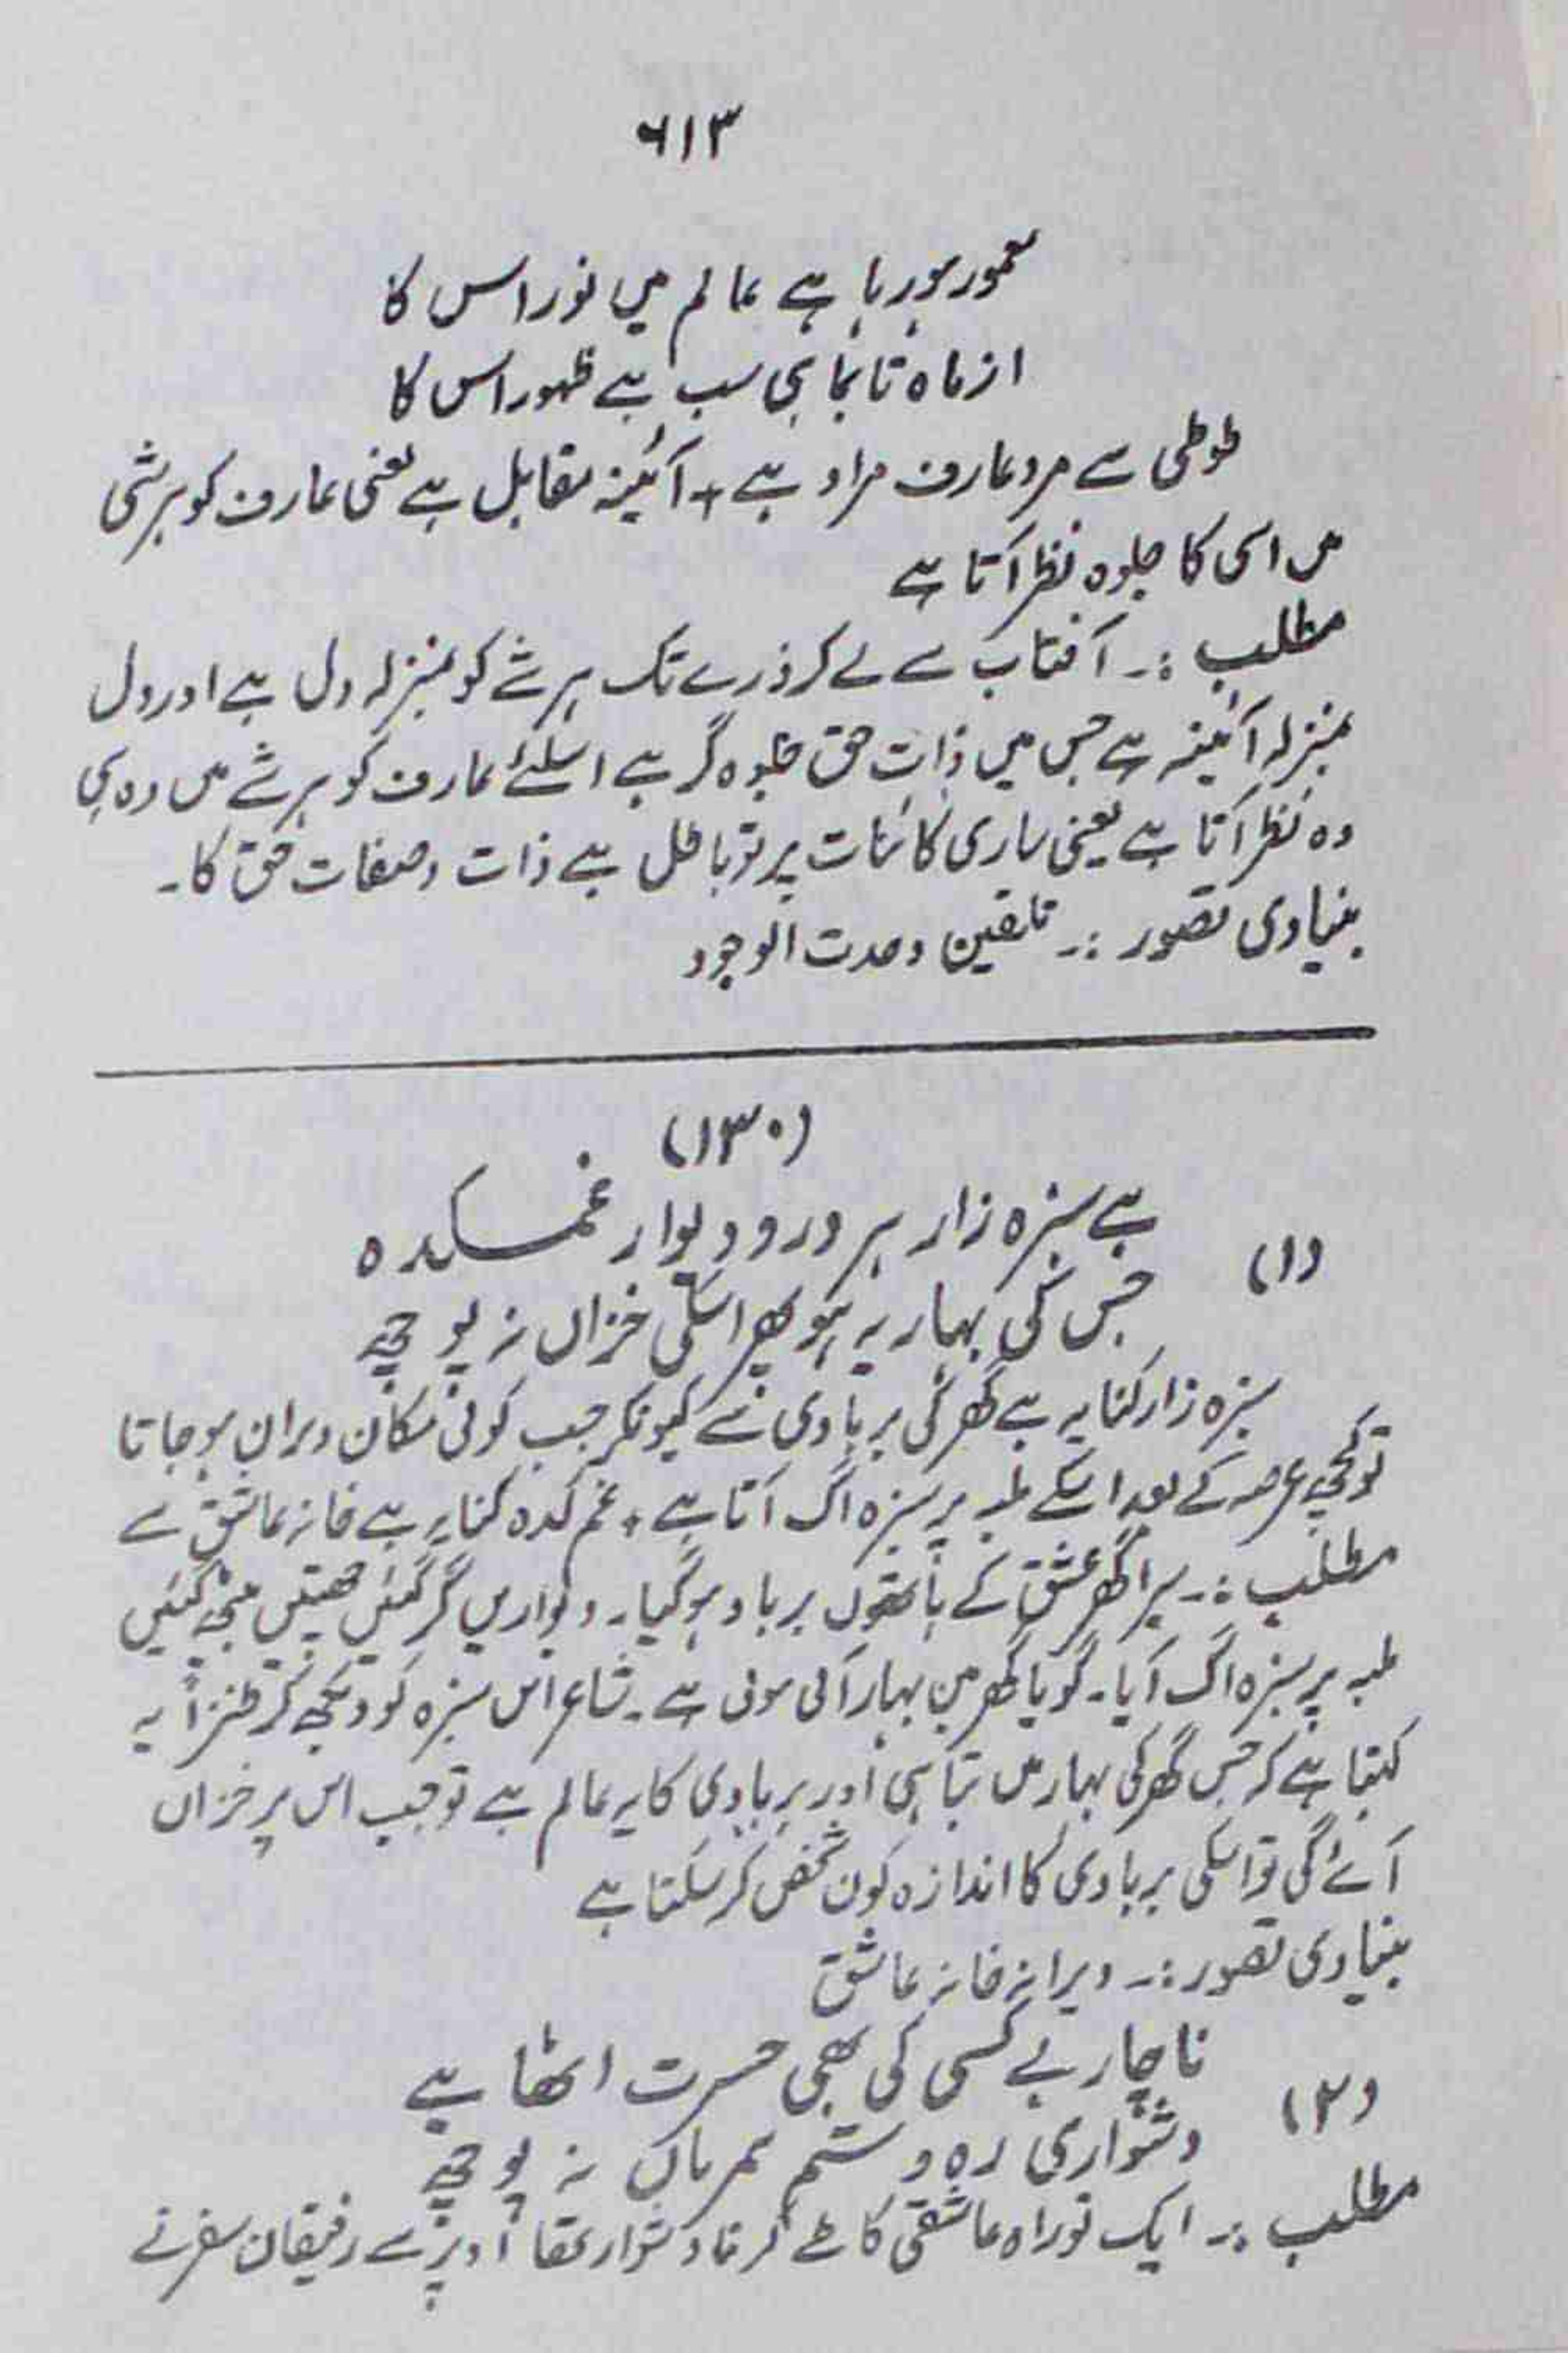 ۶۱۳
معمور ہو رہا ہے عالم میں نور اس کا
از ماہ تا بماہی سب ہے ظہور اس کا
طوطی سے مرد عارف مراد ہے + آئینہ مقابل ہے یعنی عارف کو ہر شی
میں اسی کا جلوہ نظر آتا ہے
مطلب :۔ آفتاب سے لے کر ذرے تک ہر شے کو بمنزلہ دل ہے اور دل
بمنزلہ آئینہ ہے جس میں ذات حق جلوہ گر ہے اسلئے عارف کو ہر شے میں وہ ہی
وہ نظر آتا ہے یعنی ساری کائنات پرتو یا ظل ہے ذات و صفات حق کا۔
بنیادی تصور :۔ تلقین وحدت الوجود
(۱۳۰)
(۱) ہے سبزہ زار ہر در و دیوار غمکدہ
جس کی بہار یہ ہو پھر اسکی خزاں نہ پوچھ
سبزہ زار کنایہ ہے گھر کی بربادی سے کیونکر جب کوئی مکان ویران ہو جاتا
تو کچھ عرصہ کے بعد اسکے ملبہ پر سبزہ اگ آتا ہے + غم کدہ کنایہ ہے خانہ عاشق سے
مطلب :۔ میرا گھر عشق کے ہاتھوں برباد ہو گیا۔ دیواریں گر گئیں چھتیں بیٹھ گئیں
ملبہ پر سبزہ اگ آیا۔ گویا گھر میں بہار آئی ہوئی ہے۔ شاعر اس سبزہ کو دیکھ کر طنزاً یہ
کہتا ہے کہ جس گھر کی بہار میں تباہی اور بربادی کا یہ عالم ہے تو جب اس پر خزاں
آئے گی تو اسکی بربادی کا اندازہ کون شخص کر سکتا ہے
بنیادی تصور :۔ ویرانہ خانہ عاشق
(۲) ناچار بے کسی کی بھی حسرت اٹھا ہے
دشواری رہ و ستم ہمرہاں نہ پوچھ
مطلب :۔ ایک تو راہ عاشقی کا طے کرنا دشوار تھا اوپر سے رفیقان سفر نے